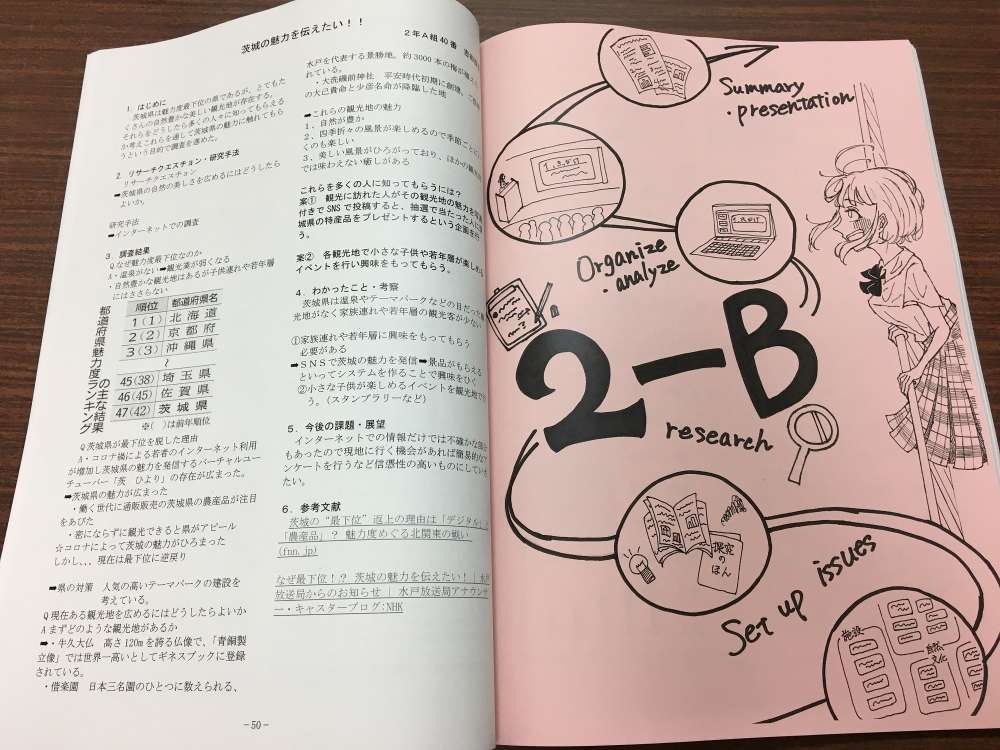 茨城の魅力を伝えたい！！
２年Ａ組40番
1. はじめに
茨城県は魅力度最下位の県であるが、とてもた
くさんの自然豊かな美しい観光地が存在する。
それらをどうしたら多くの人々に知ってもらえる
か考えこれらを通して茨城県の魅力に触れてもら
うという目的で調査を進めた。
2 リサーチクエスチョン・研究手法
リサーチクエスチョン
➡茨城県の自然の美しさを広めるにはどうしたら
よいか。
研究手法
➡インターネットでの調査
3 調査結果
Ｑなぜ魅力度最下位なのか
A・温泉がない➡観光業が弱くなる
・自然豊かな観光地はあるが子供連れや若年層
にはささらない
都道府県魅力度ランキング
の主な結果
順位 都道府県名
1(1) 北海道
2(2) 京都府
3(3) 沖縄県
～
45(38) 埼玉県
46(45) 佐賀県
47(42) 茨城県
※( )は前年順位
Ｑ茨城県が最下位を脱した理由
A・コロナ禍による若者のインターネット利用
が増加し茨城県の魅力を発信するバーチャルユー
チューバー「茨 ひより」の存在が広まった。
➡茨城県の魅力が広まった
・働く世代に通販販売の茨城県の農産品が注目
をあびた
・密にならずに観光できると県がアピール
☆コロナによって茨城の魅力がひろまった
しかし、、、現在は最下位に逆戻り
➡県の対策 人気の高いテーマパークの建設を
考えている。
Ｑ現在ある観光地を広めるにはどうしたらよいか
Ａまずどのような観光地があるか
➡・牛久大仏 高さ120mを誇る仏像で、「青銅製
立像」では世界一高いとしてギネスブックに登録
されている。
・偕楽園 日本三名園のひとつに数えられる、
水戸を代表する景勝地。約3000本の梅が
れている。
・大洗磯前神社 平安時代初期に創建。
の大己貴命と少彦名命が降臨した地
➡これらの観光地の魅力
1、自然が豊か
2、四季折々の風景が楽しめるので季節ごとに
くのも楽しい
3、美しい風景がひろがっており、ほかの
では味わえない癒しがある
これらを多くの人に知ってもらうには？
案① 観光に訪れた人がその観光地の魅力を
付きでSNSで投稿すると、抽選で当たった人に
城県の特産品をプレゼントするという企画を行
う。
案② 各観光地で小さな子供や若年層が楽しめる
イベントを行い興味をもってもらう。
4. わかったこと・考察
茨城県は温泉やテーマパークなどの目だった
光地がなく家族連れや若年層の観光客が少ない
①家族連れや若年層に興味をもってもらう
必要がある
➡SNSで茨城の魅力を発信➡景品がもらえる
といってシステムを作ることで興味をひく
②小さな子供が楽しめるイベントを観光地で
う。（スタンプラリーなど）
5. 今後の課題・展望
インターネットでの情報だけでは不確かな
もあったので現地に行く機会があれば簡易的な
ンケートを行うなど信憑性の高いものにしていき
たい。
6. 参考文献
茨城の“最下位”返上の理由は「デジタル」
「農産品」？ 魅力度めぐる北関東の戦い
(fnn.jp)
なぜ最下位！？ 茨城の魅力を伝えたい！｜水戸
放送局からのお知らせ ｜ 水戸放送局アナウンサ
ー・キャスターブログ:NHK
－50－
Summary
・presentation
Organize
・analyze
2-B
research
探究
の
ほん
Set up
issues
施設
自然
文化